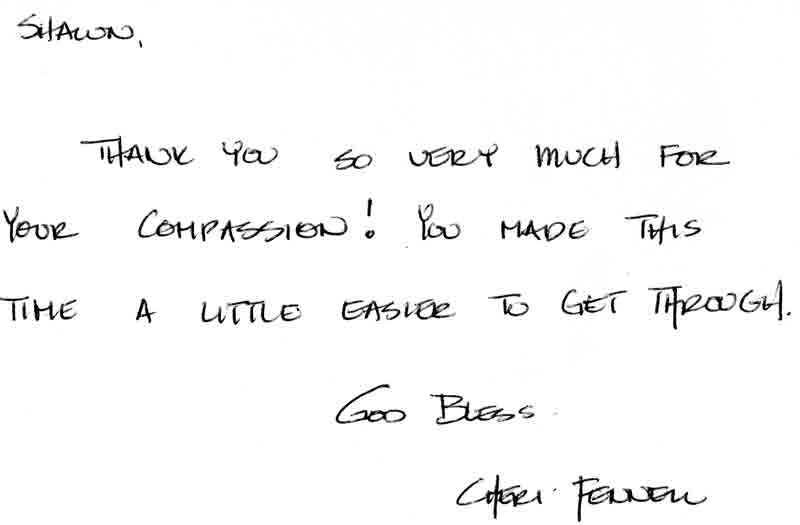 SHAWN,
THANK YOU SO VERY MUCH FOR
YOUR COMPASSION! YOU MADE THIS
TIME A LITTLE EASIER TO GET THROUGH.
GOD BLESS.
CHERI FENNELL